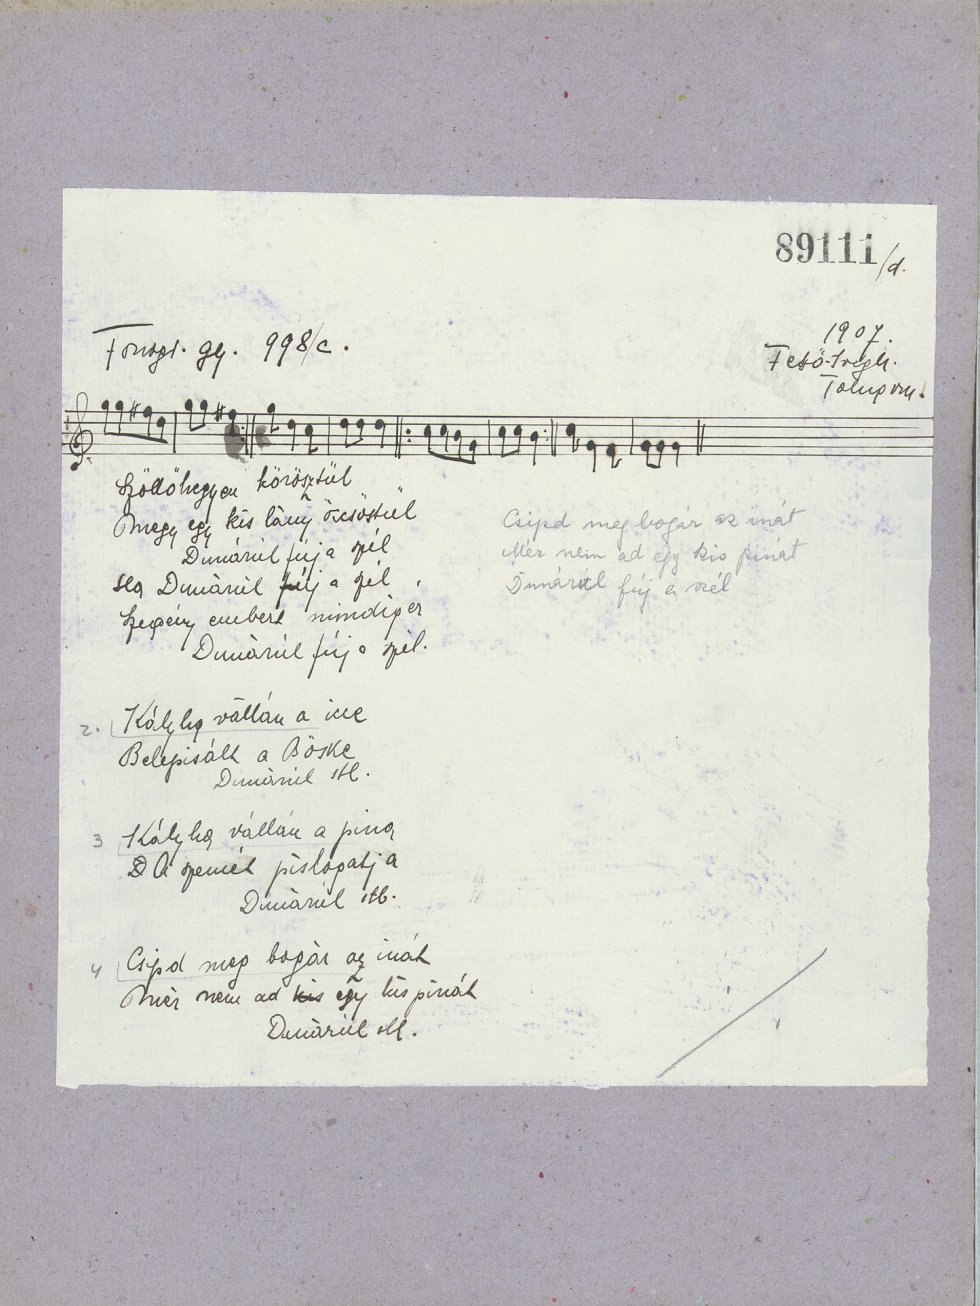 89111/d.
Fonogr. gy. 998/c.
1907.
Felső-Iregh.
Tolna vm.
Szöllőhegyen körösztül
Megy egy kis lány öcsöstül
Dunárúl fúj a szél
Ha Dunárúl fúj a szél,
Szegény embert mindig ér
Dunárúl fúj a szél.
Csipd meg bogár az inát
Mér nem ad egy kis pinát
Dunárul fúj a szél
2. Kályha vállán a icce
Belepisált a Böske
Dunárúl stb.
3 Kályha vállán a pina
A szemét pislogatja
Dunárúl stb.
4 Csipd meg bogár az inát
Mér nem ad kis egy kis pinát
Dunárúl stb.